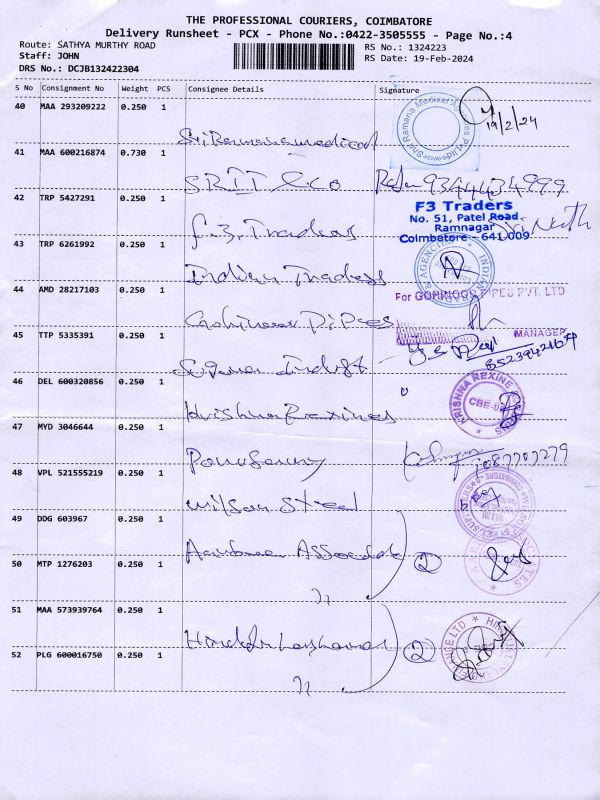 THE PROFESSIONAL COURIERS, COIMBATORE
Delivery Runsheet - PCX - Phone No.:0422-3505555 - Page No.:4
Route: SATHYA MURTHY ROAD
Staff: JOHN
DRS No.: DCJB132422304
RS No.: 1324223
RS Date: 19-Feb-2024
S No Consignment No Weight PCS Consignee Details Signature
40 MAA 293209222 0.250 1
Sri Ramana medical
19/2/24
41 MAA 600216874 0.730 1
SRIT & co
9344434999
42 TRP 5427291 0.250 1
F3 Traders
F3 Traders
No. 51, Patel Road.
Ramnagar
Coimbatore - 641 009
43 TRP 6261992 0.250 1
Indian Traders
44 AMD 28217103 0.250 1
Cohinoor Pipes
For GOHINOOR PIPES PVT. LTD
MANAGER
45 TTP 5335391 0.250 1
46 DEL 600320856 0.250 1
Krishna Rexines
KRISHNA REXINE
CBE-
47 MYD 3046644 0.250 1
48 VPL 521555219 0.250 1
Wilson Steel
49 DDG 603967 0.250 1
Associate
50 MTP 1276203 0.250 1
②
51 MAA 573939764 0.250 1
②
52 PLG 600016750 0.250 1